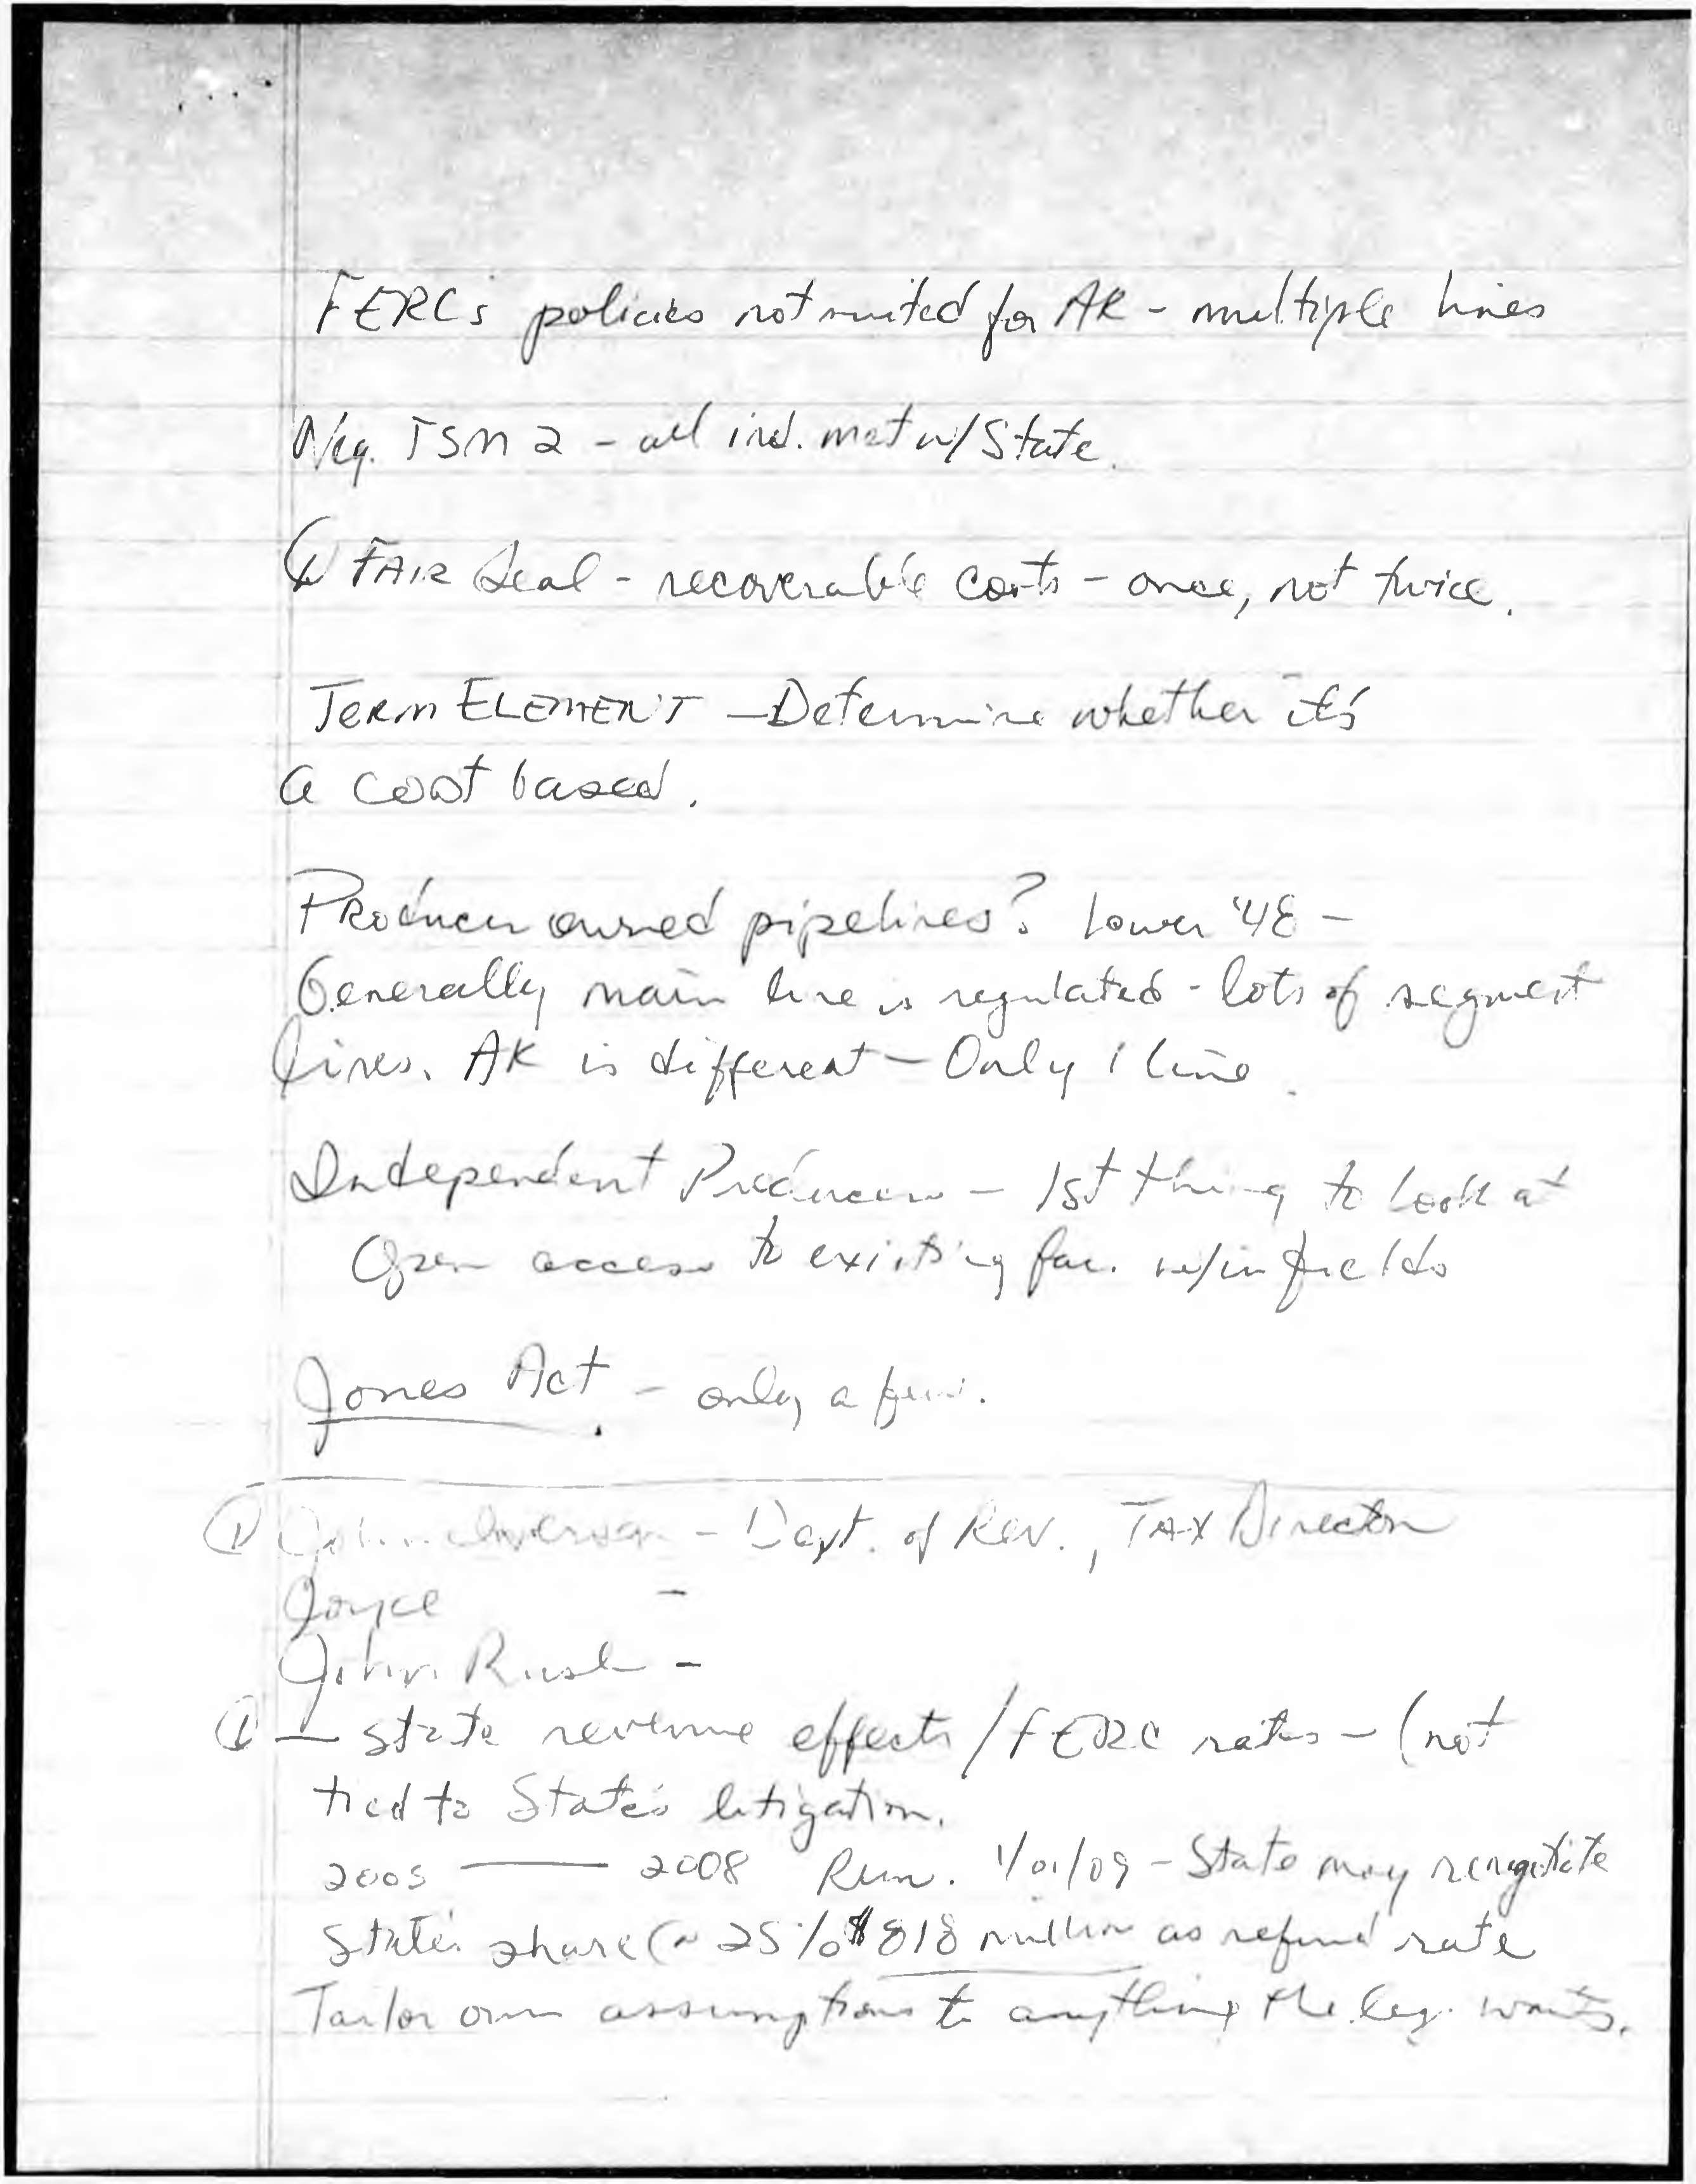 FERC's policies not suited for AK - multiple lines
Neg. TSM 2 - all ind. met w/ State.
(1) FAIR deal - recoverable costs - once, not twice.
TERM ELEMENT - Determine whether it's
a cost based.
Producer owned pipelines? Lower '48 -
Generally main line is regulated - lots of segment
lines. AK is different - Only 1 line.
Independent Producers - 1st thing to look at
Open access to existing fac. w/in fields
Jones Act - only a few.
(1) John Iverson - Dept. of Rev., TAX Director
Joyce -
John Rush -
(1) - State revenue effects / FERC rates - (not
tied to State's litigation.
2005 — 2008 Run. 1/01/09 - State may renegotiate
State's share (~ 25% $818 million as refund rate
Tailor own assumptions to anything the leg. wants.